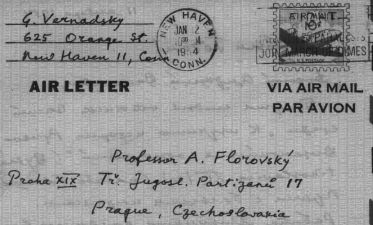 G. Vernadsky
625 Orange St.
New Haven 11, Conn
NEW HAVEN
JAN 2
1954
CONN.
AIR MAIL
JOIN MARCH OF DIMES
AIR LETTER
VIA AIR MAIL
PAR AVION
Professor A. Florovský
Praha XIX Tř. Jugosl. Partizanů 17
Prague, Czechoslovakia